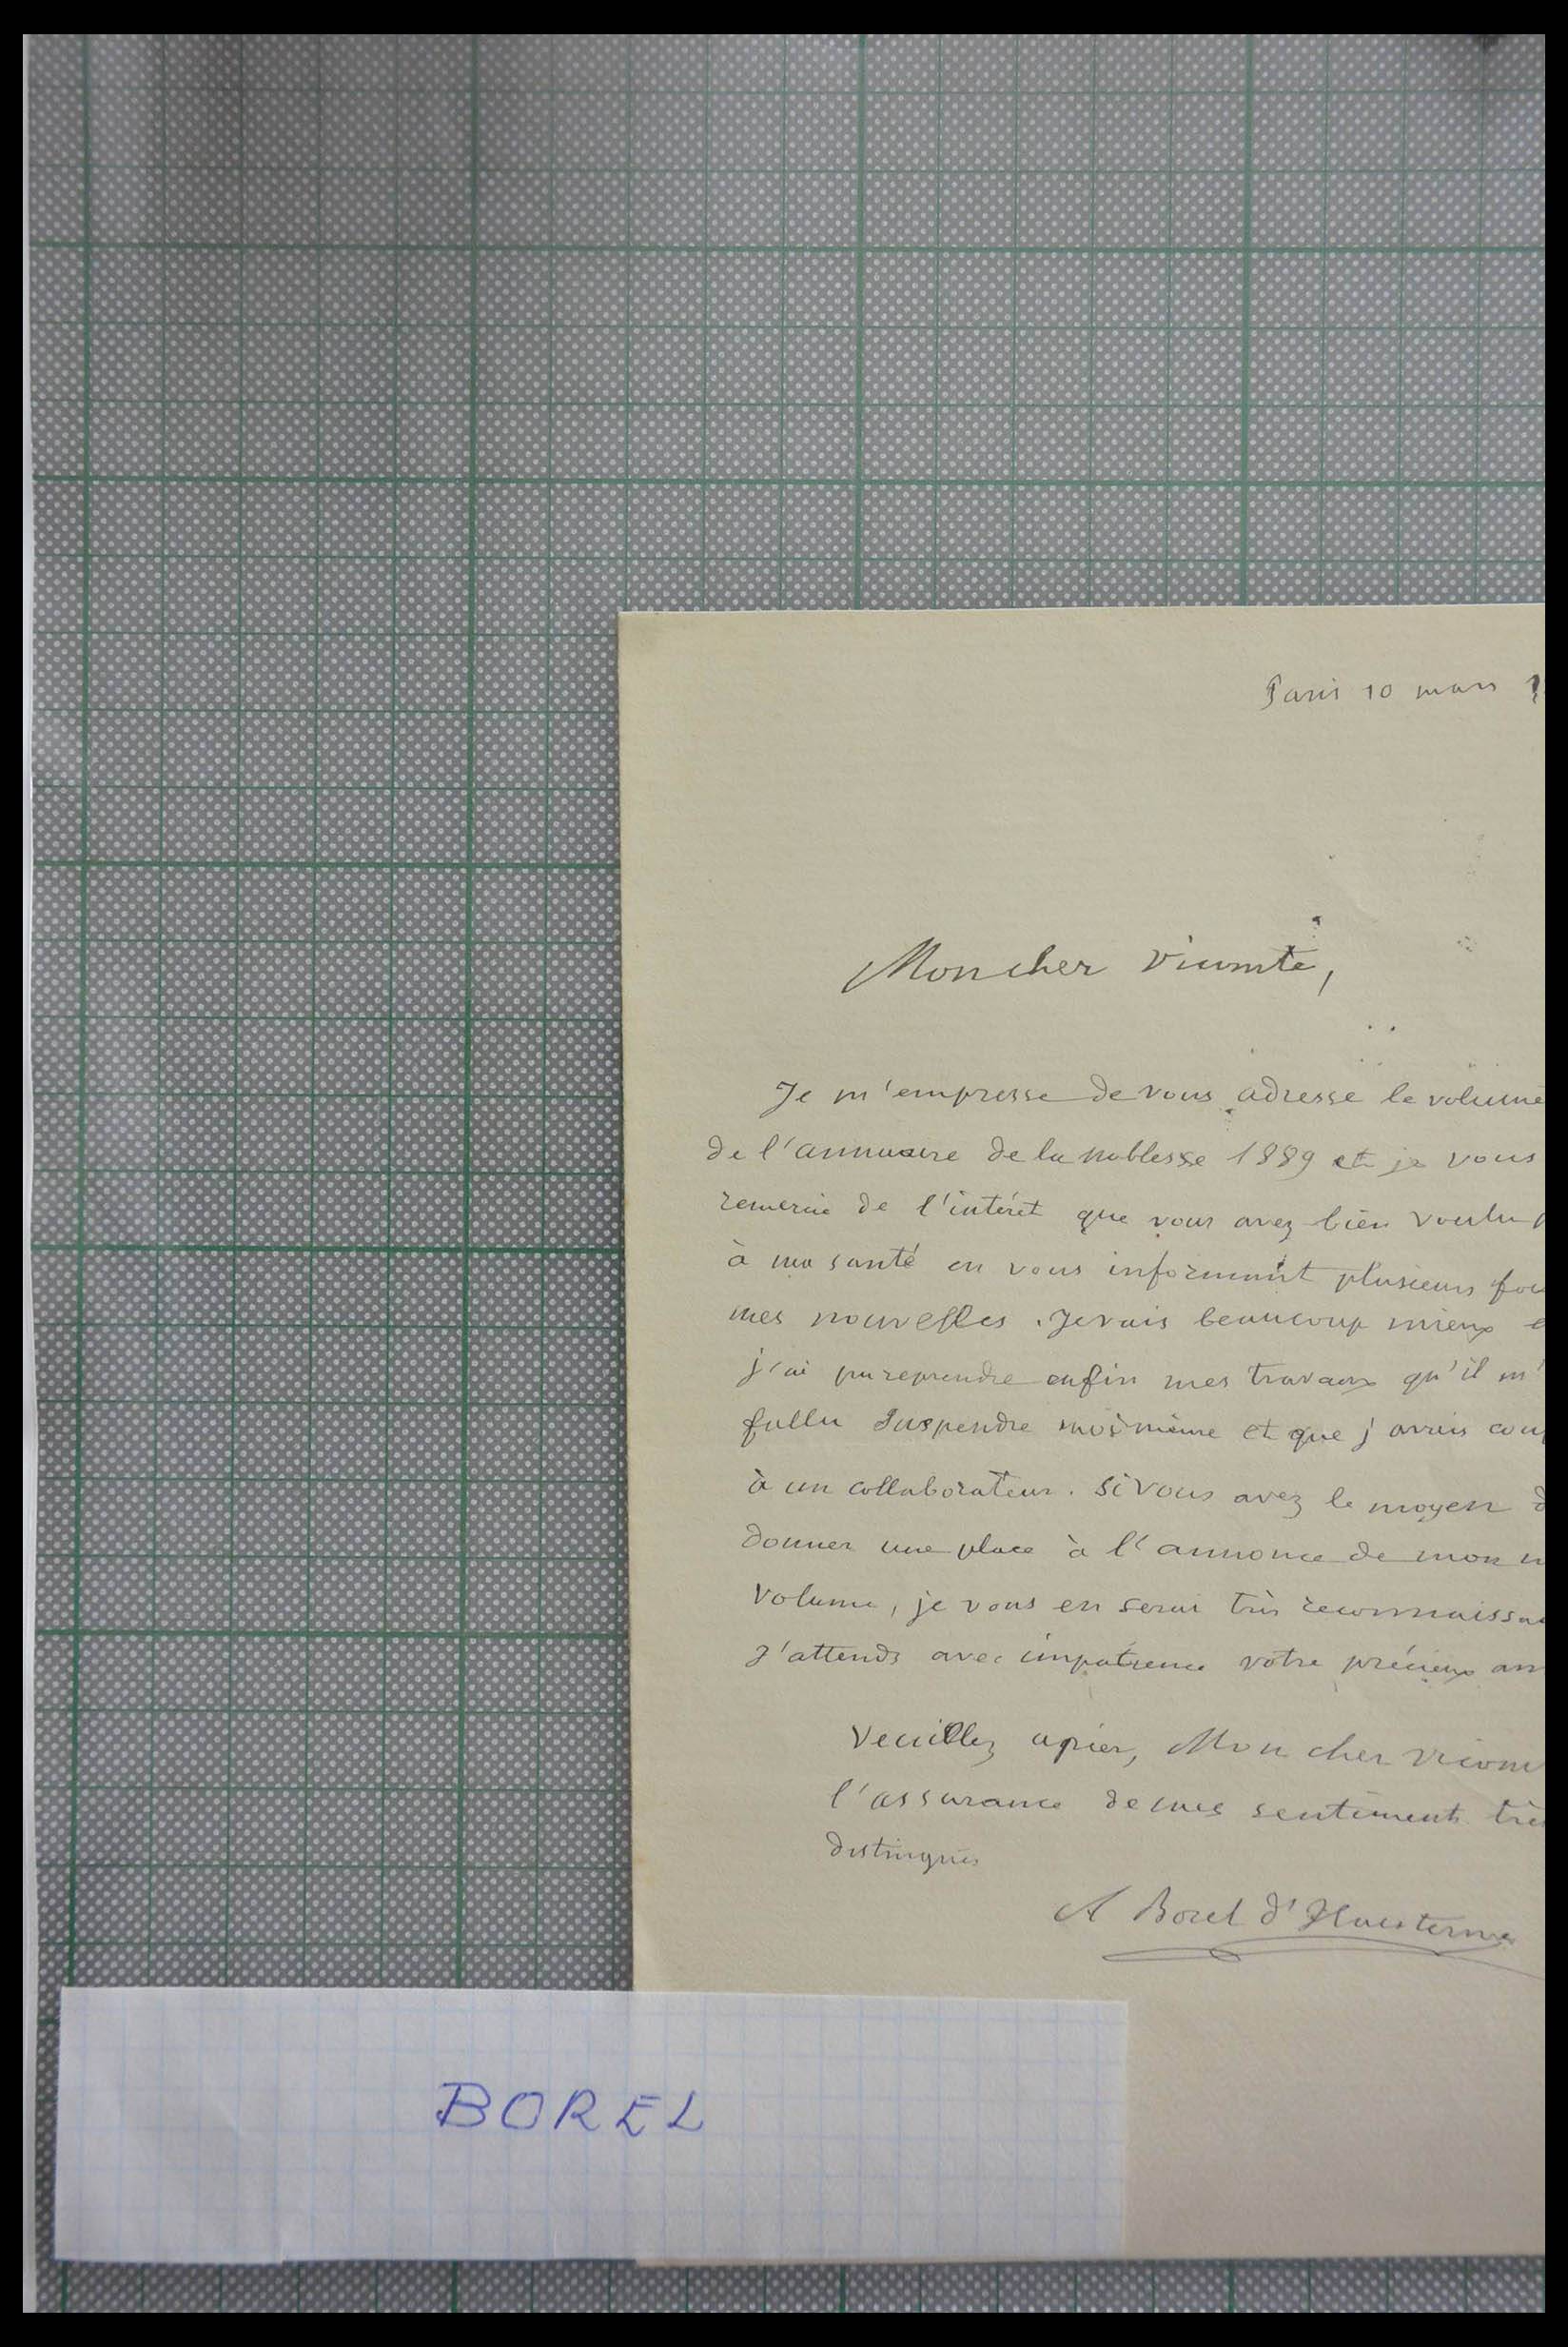 Paris 10 mars 1
Mon cher Vicomte,
Je m'empresse de vous adresse le volume
de l'annuaire de la noblesse 1889 et je vous
remercie de l'intérêt que vous avez bien voulu
à ma santé en vous informant plusieurs foi
mes nouvelles. Je vais beaucoup mieux e
j'ai pu reprendre enfin mes travaux qu'il m'
fallu suspendre moi même et que j'avais con
à un collaborateur. Si vous avez le moyen d
donner une place à l'annonce de mon n
volume, je vous en serai très reconnaissa
J'attends avec impatience votre précieux an
Veuillez agréer, Mon cher Vicom
l'assurance de mes sentiments très
distingués
A Borel d'Hauterive
BOREL